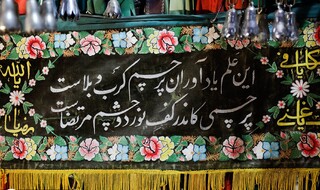 این علم یادآور آن پرچم کرب و بلاست
پرچمی کاندر کف نور دو چشم مرتضاست